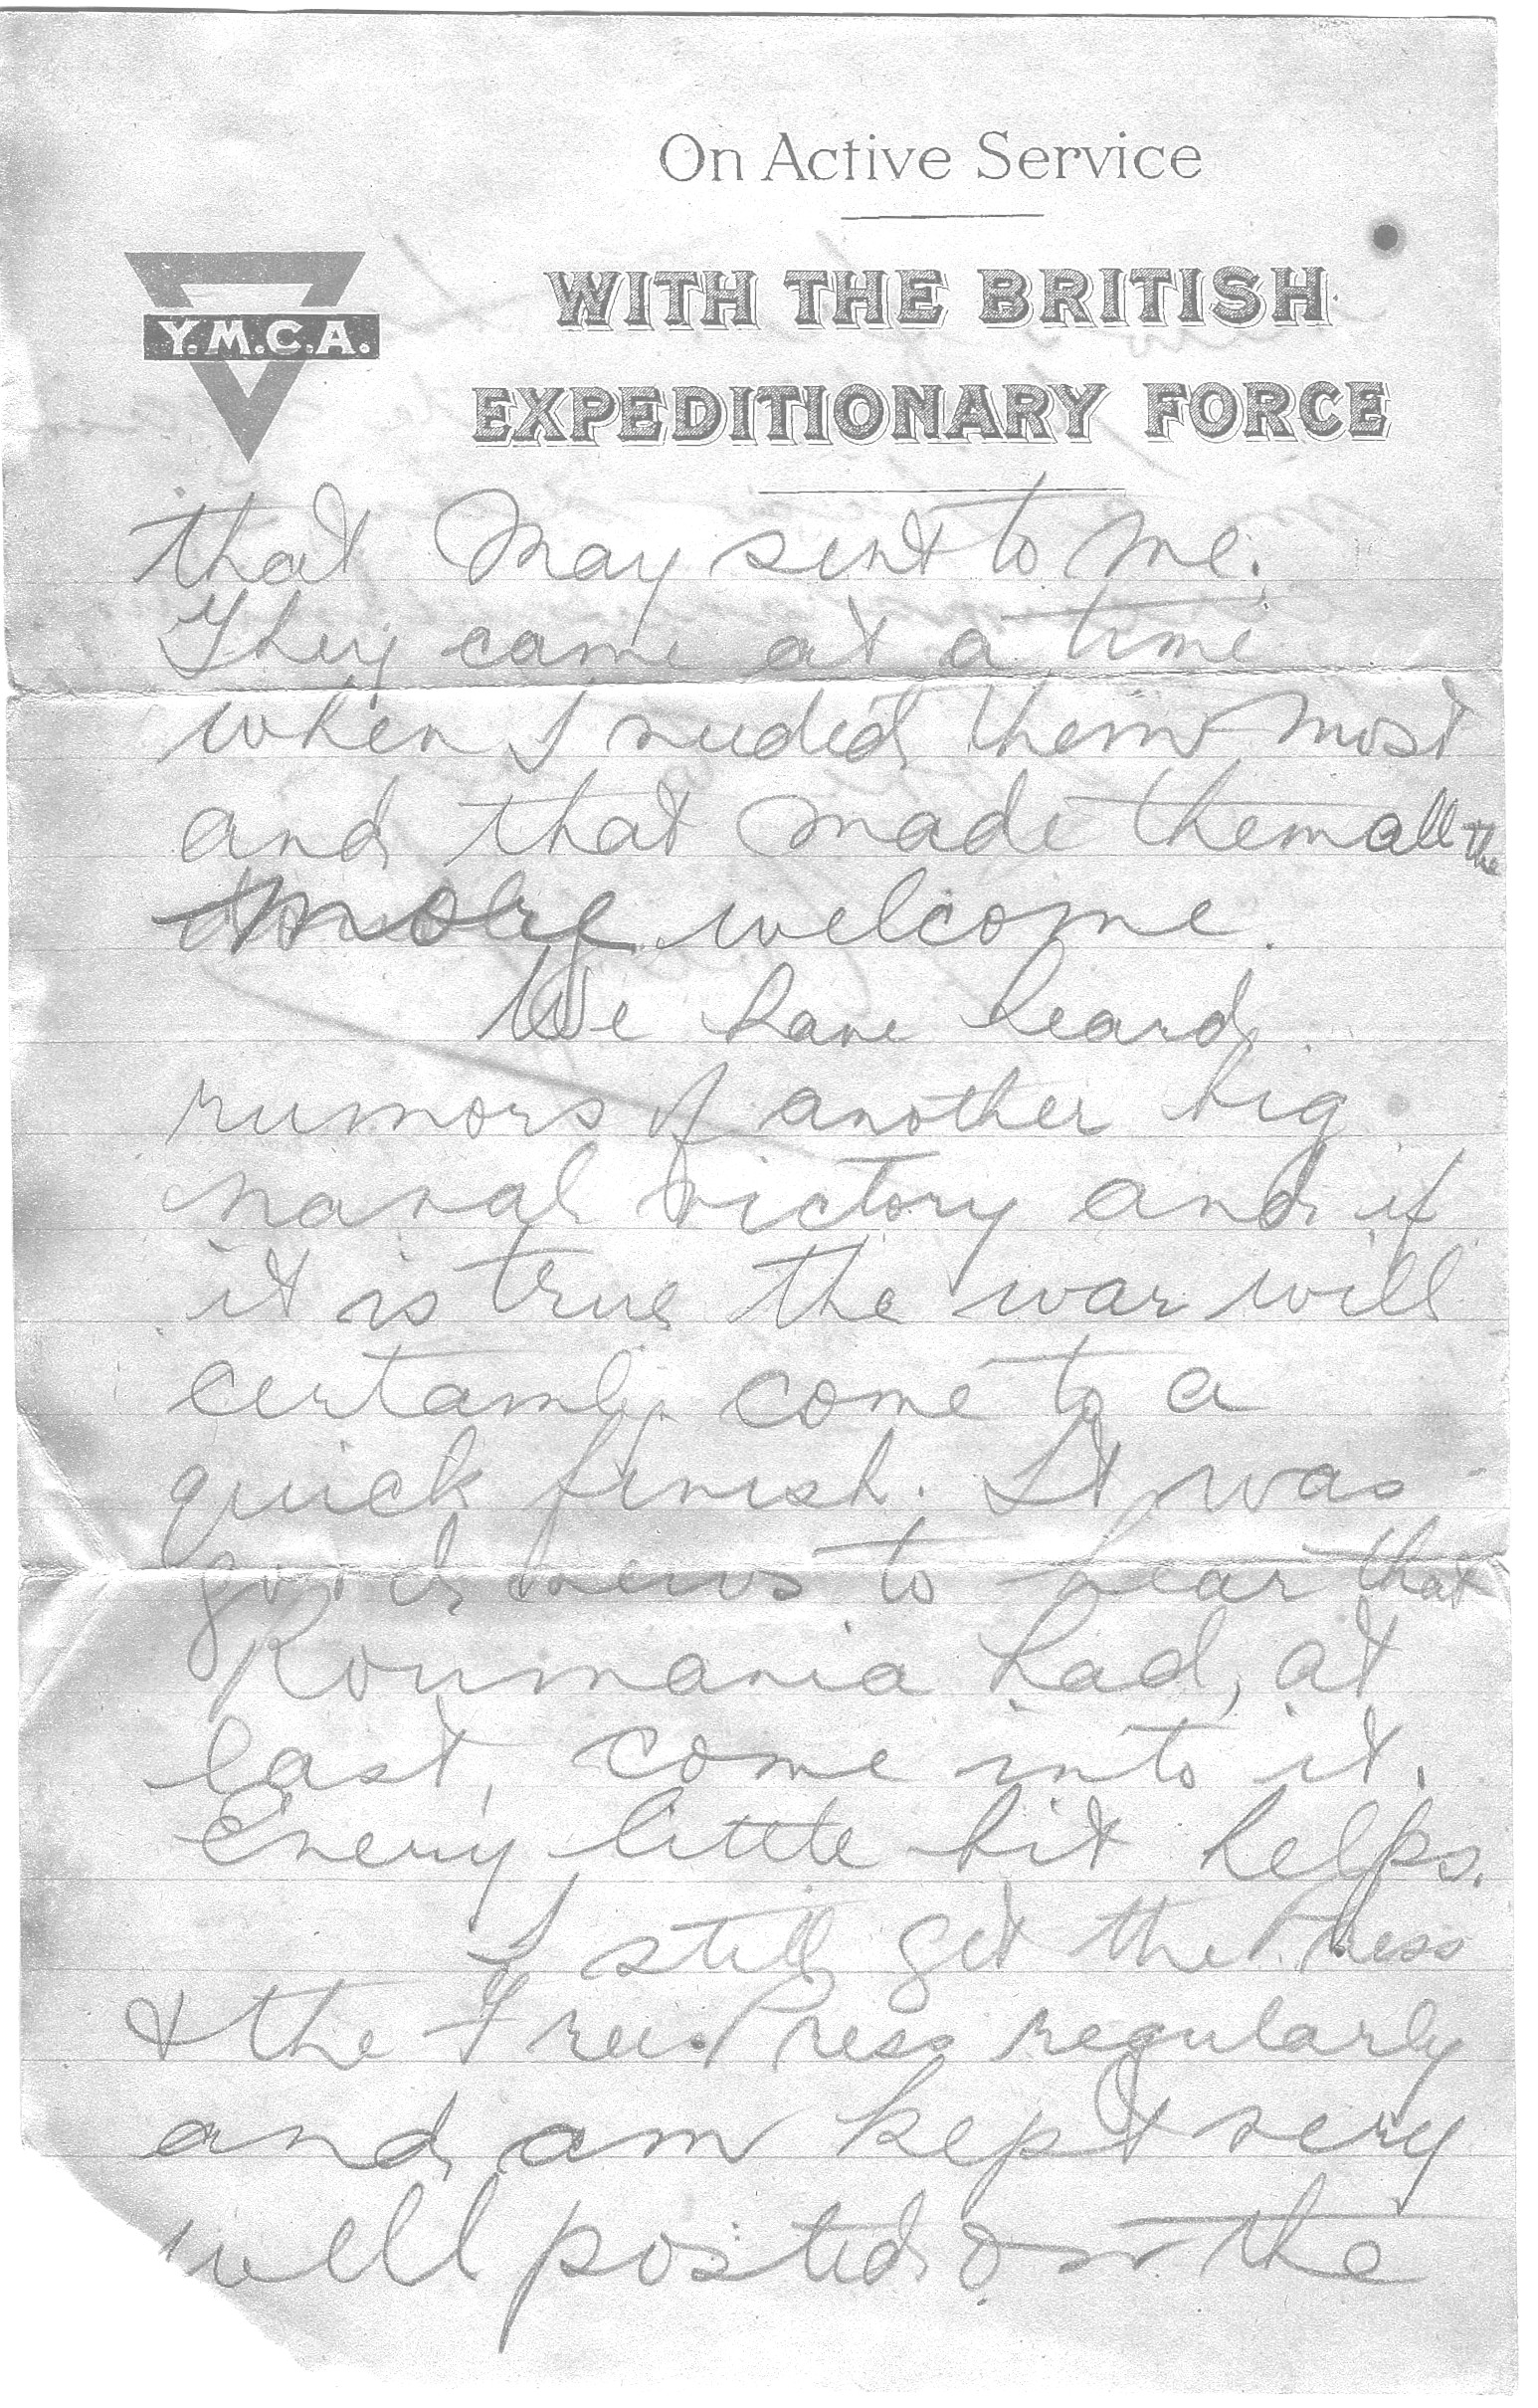 On Active Service
WITH THE BRITISH
EXPEDITIONARY FORCE
Y.M.C.A.
that May sent to me.
They came at a time
when I needed them most
and that made them all the
more welcome.
We have heard
rumors of another big
naval victory and if
it is true the war will
certainly come to a
quick finish. It was
good news to hear that
Roumania had, at
last, come into it.
Every little bit helps.
I still get the Press
& the Free Press regularly
and am kept very
well posted on the